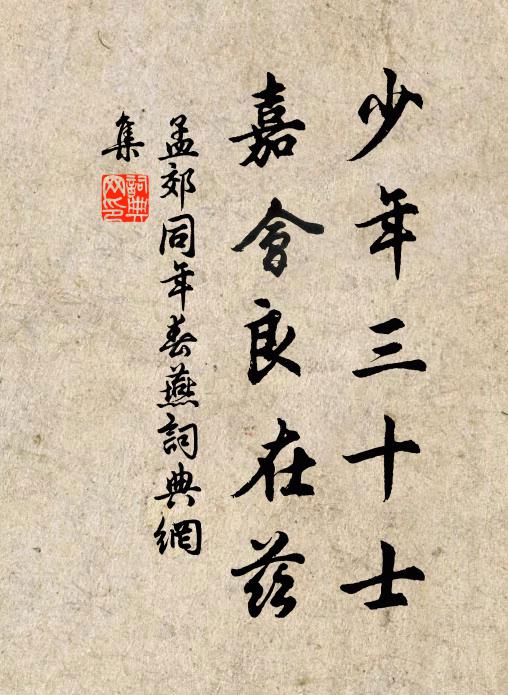 少年三十士
嘉會良在茲
孟郊同年春燕詞典網
集
詞典网印